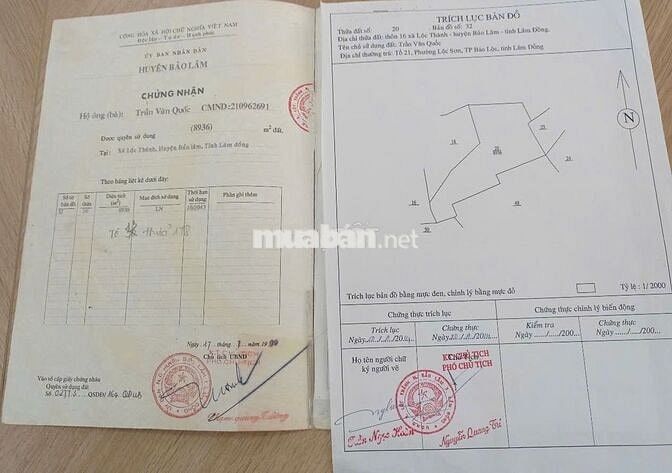 CỘNG HÒA XÃ HỘI CHỦ NGHĨA VIỆT NAM
Độc lập - Tự do - Hạnh phúc
ỦY BAN NHÂN DÂN
HUYỆN BẢO LÂM
CHỨNG NHẬN
Hộ ông (bà): Trần Văn Quốc CMND:210962691
Được quyền sử dụng (8936) m² đất.
Tại: Xã Lộc Thành, Huyện Bảo lâm, Tỉnh Lâm đồng
Theo bảng liệt kê dưới đây:
Số tờ bản đồ
Số thửa
Diện tích (m²)
Mục đích sử dụng
Thời hạn sử dụng
Phần ghi thêm
32 20 8936 LN
Ngày 17 tháng năm
Chủ tịch UBND
Vào sổ cấp giấy chứng nhận
Quyền sử dụng đất
Số QSDĐ/
TRÍCH LỤC BẢN ĐỒ
Thửa đất số: 20 Bản đồ số: 32
Địa chỉ thửa đất: thôn 16 xã Lộc Thành - huyện Bảo Lâm - tỉnh Lâm Đồng.
Tên chủ sử dụng đất: Trần Văn Quốc
Địa chỉ thường trú: Tổ 21, Phường Lộc Sơn, TP Bảo Lộc, tỉnh Lâm Đồng
N
18
25
20
8936
24
16
49
50
muaban.net
Trích lục bản đồ bằng mực đen, chỉnh lý bằng mực đỏ
Tỷ lệ : 1/ 2000
Chứng thực trích lục
Chứng thực chỉnh lý biến động
Trích lục
Chứng thực
Kiểm tra
Chứng thực
Ngày....../....../200...
Ngày....../....../200...
Họ tên người chữ ký người vẽ
KT.CHỦ TỊCH
PHÓ CHỦ TỊCH
Trần Ngọc Hoàn
Nguyễn Quang Trí